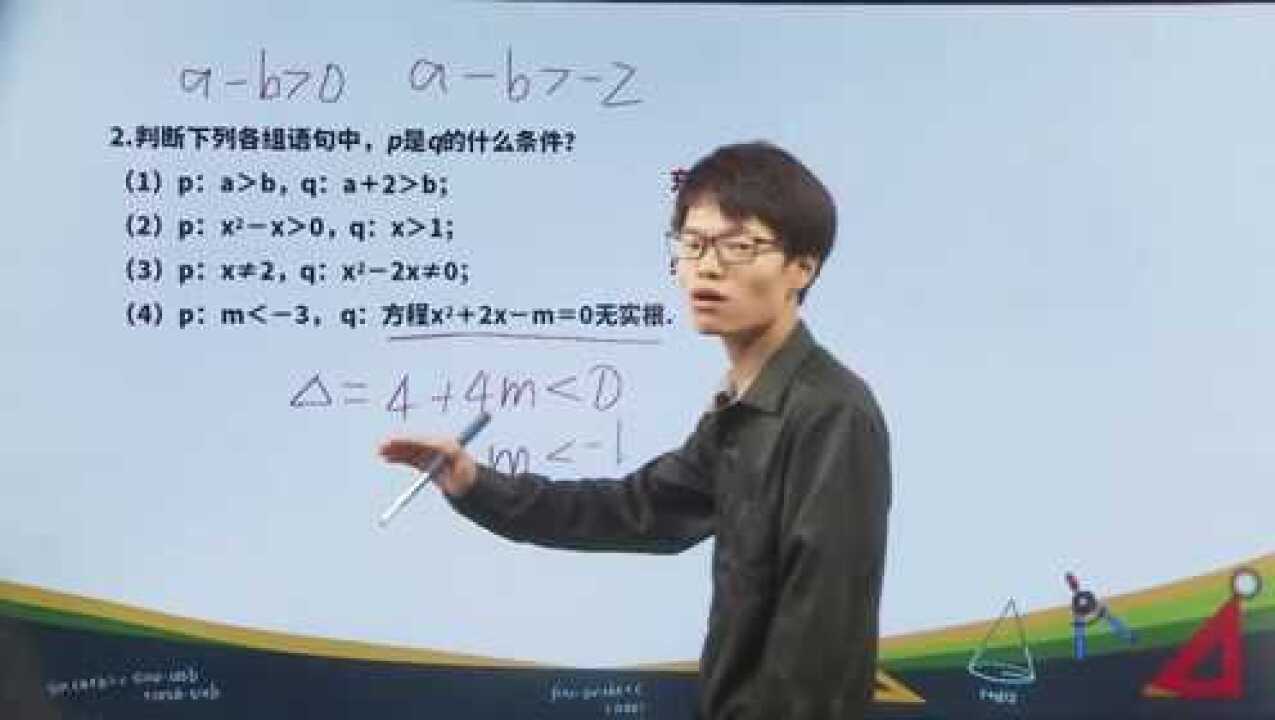 a-b>0 a-b>-2
2.判断下列各组语句中，p是q的什么条件?
（1）p：a＞b，q：a＋2＞b；
（2）p：x²－x＞0，q：x＞1；
（3）p：x≠2，q：x²－2x≠0；
（4）p：m＜－3，q：方程x²＋2x－m＝0无实根.
△=4+4m<0
m<-1